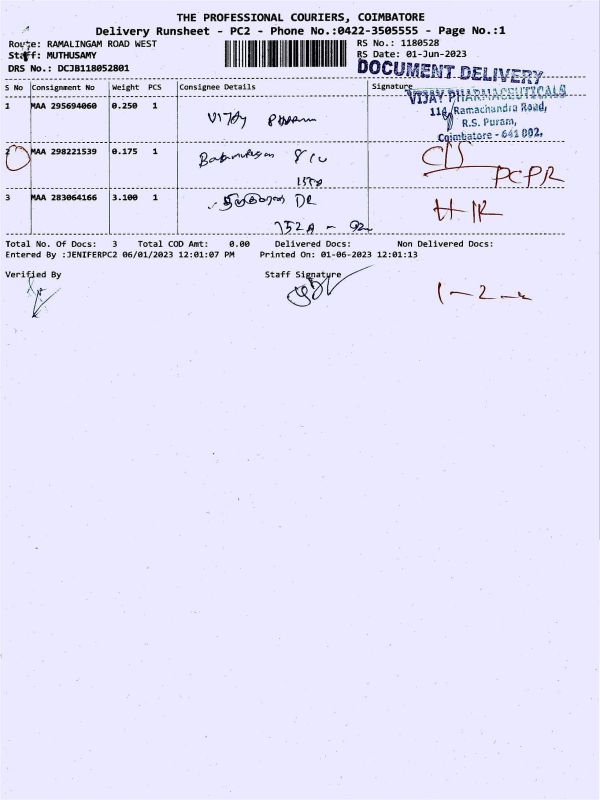 THE PROFESSIONAL COURIERS, COIMBATORE
Delivery Runsheet - PC2 - Phone No.:0422-3505555 - Page No.:1
Route: RAMALINGAM ROAD WEST
RS No.: 1180528
Staff: MUTHUSAMY
RS Date: 01-Jun-2023
DRS No.: DCJB118052801
DOCUMENT DELIVERY
S No Consignment No Weight PCS Consignee Details Signature
VIJAY PHARMACEUTICALS
1 MAA 295694060 0.250 1
116, Ramachandra Road,
Vijay Pharm
R.S. Puram,
Coimbatore - 641 002.
2 MAA 298221539 0.175 1
PCPR
3 MAA 283064166 3.100 1
DR
152A - 92
Total No. Of Docs: 3 Total COD Amt: 0.00 Delivered Docs: Non Delivered Docs:
Entered By :JENIFERPC2 06/01/2023 12:01:07 PM Printed On: 01-06-2023 12:01:13
Verified By Staff Signature
1 - 2 -